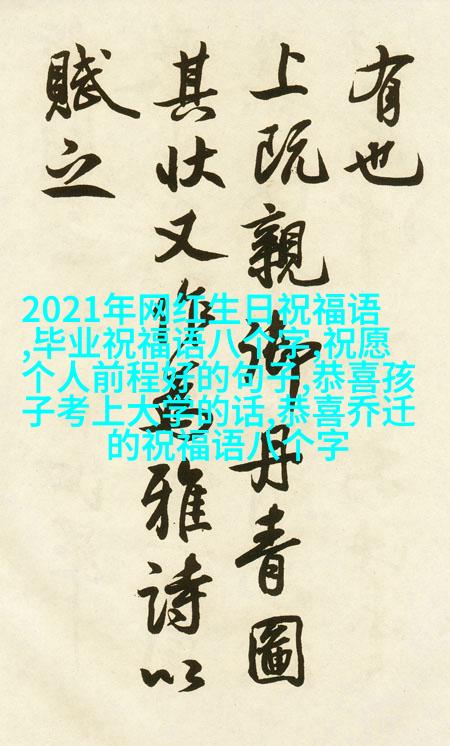 有也
上既親御丹青圖
其状又雅詩以
賦之
2021年网红生日祝福语
,毕业祝福语八个字,祝愿
个人前程好的句子,恭喜孩
子考上大学的话,恭喜乔迁
的祝福语八个字